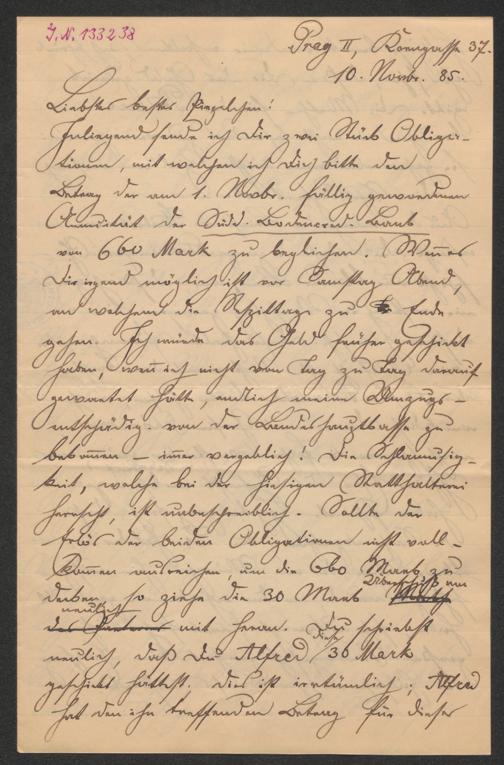 J. N. 133238
Prag II, Korngasse 37.
10. Novbr. 85.
Liebstes bestes
Inliegend sende ich Dir zwei Stück Obliga-
tionen, mit welchen ich Dich bitte den
Betrag der am 1. Novbr. fällig gewordenen
Annuität der Südd. Bodencred. Bank
von 660 Mark zu begleichen. Wenn es
Dir irgend möglich ist vor Samstag Abend,
an welchem die Respittage zu Ende
gehen. Ich würde das Geld früher geschickt
haben, wenn ich nicht von Tag zu Tag darauf
gewartet hätte, endlich meine Umzugs-
entschädig. von der Landeshauptkasse zu
bekommen – immer vergeblich! Die
keit, welche bei der hiesigen Statthalterei
herrscht, ist unbeschreiblich. Sollte der
Erlös der beiden Obligationen nicht voll-
kommen ausreichen um die 660 Mark zu
decken, so ziehe die 30 Mark Überschuß von
neulich mit heran. Du schriebst
neulich, daß Du Alfred diese 30 Mark
geschickt hättest. Dies ist irrtümlich; Alfred
hat den ihn treffenden Betrag für dieses